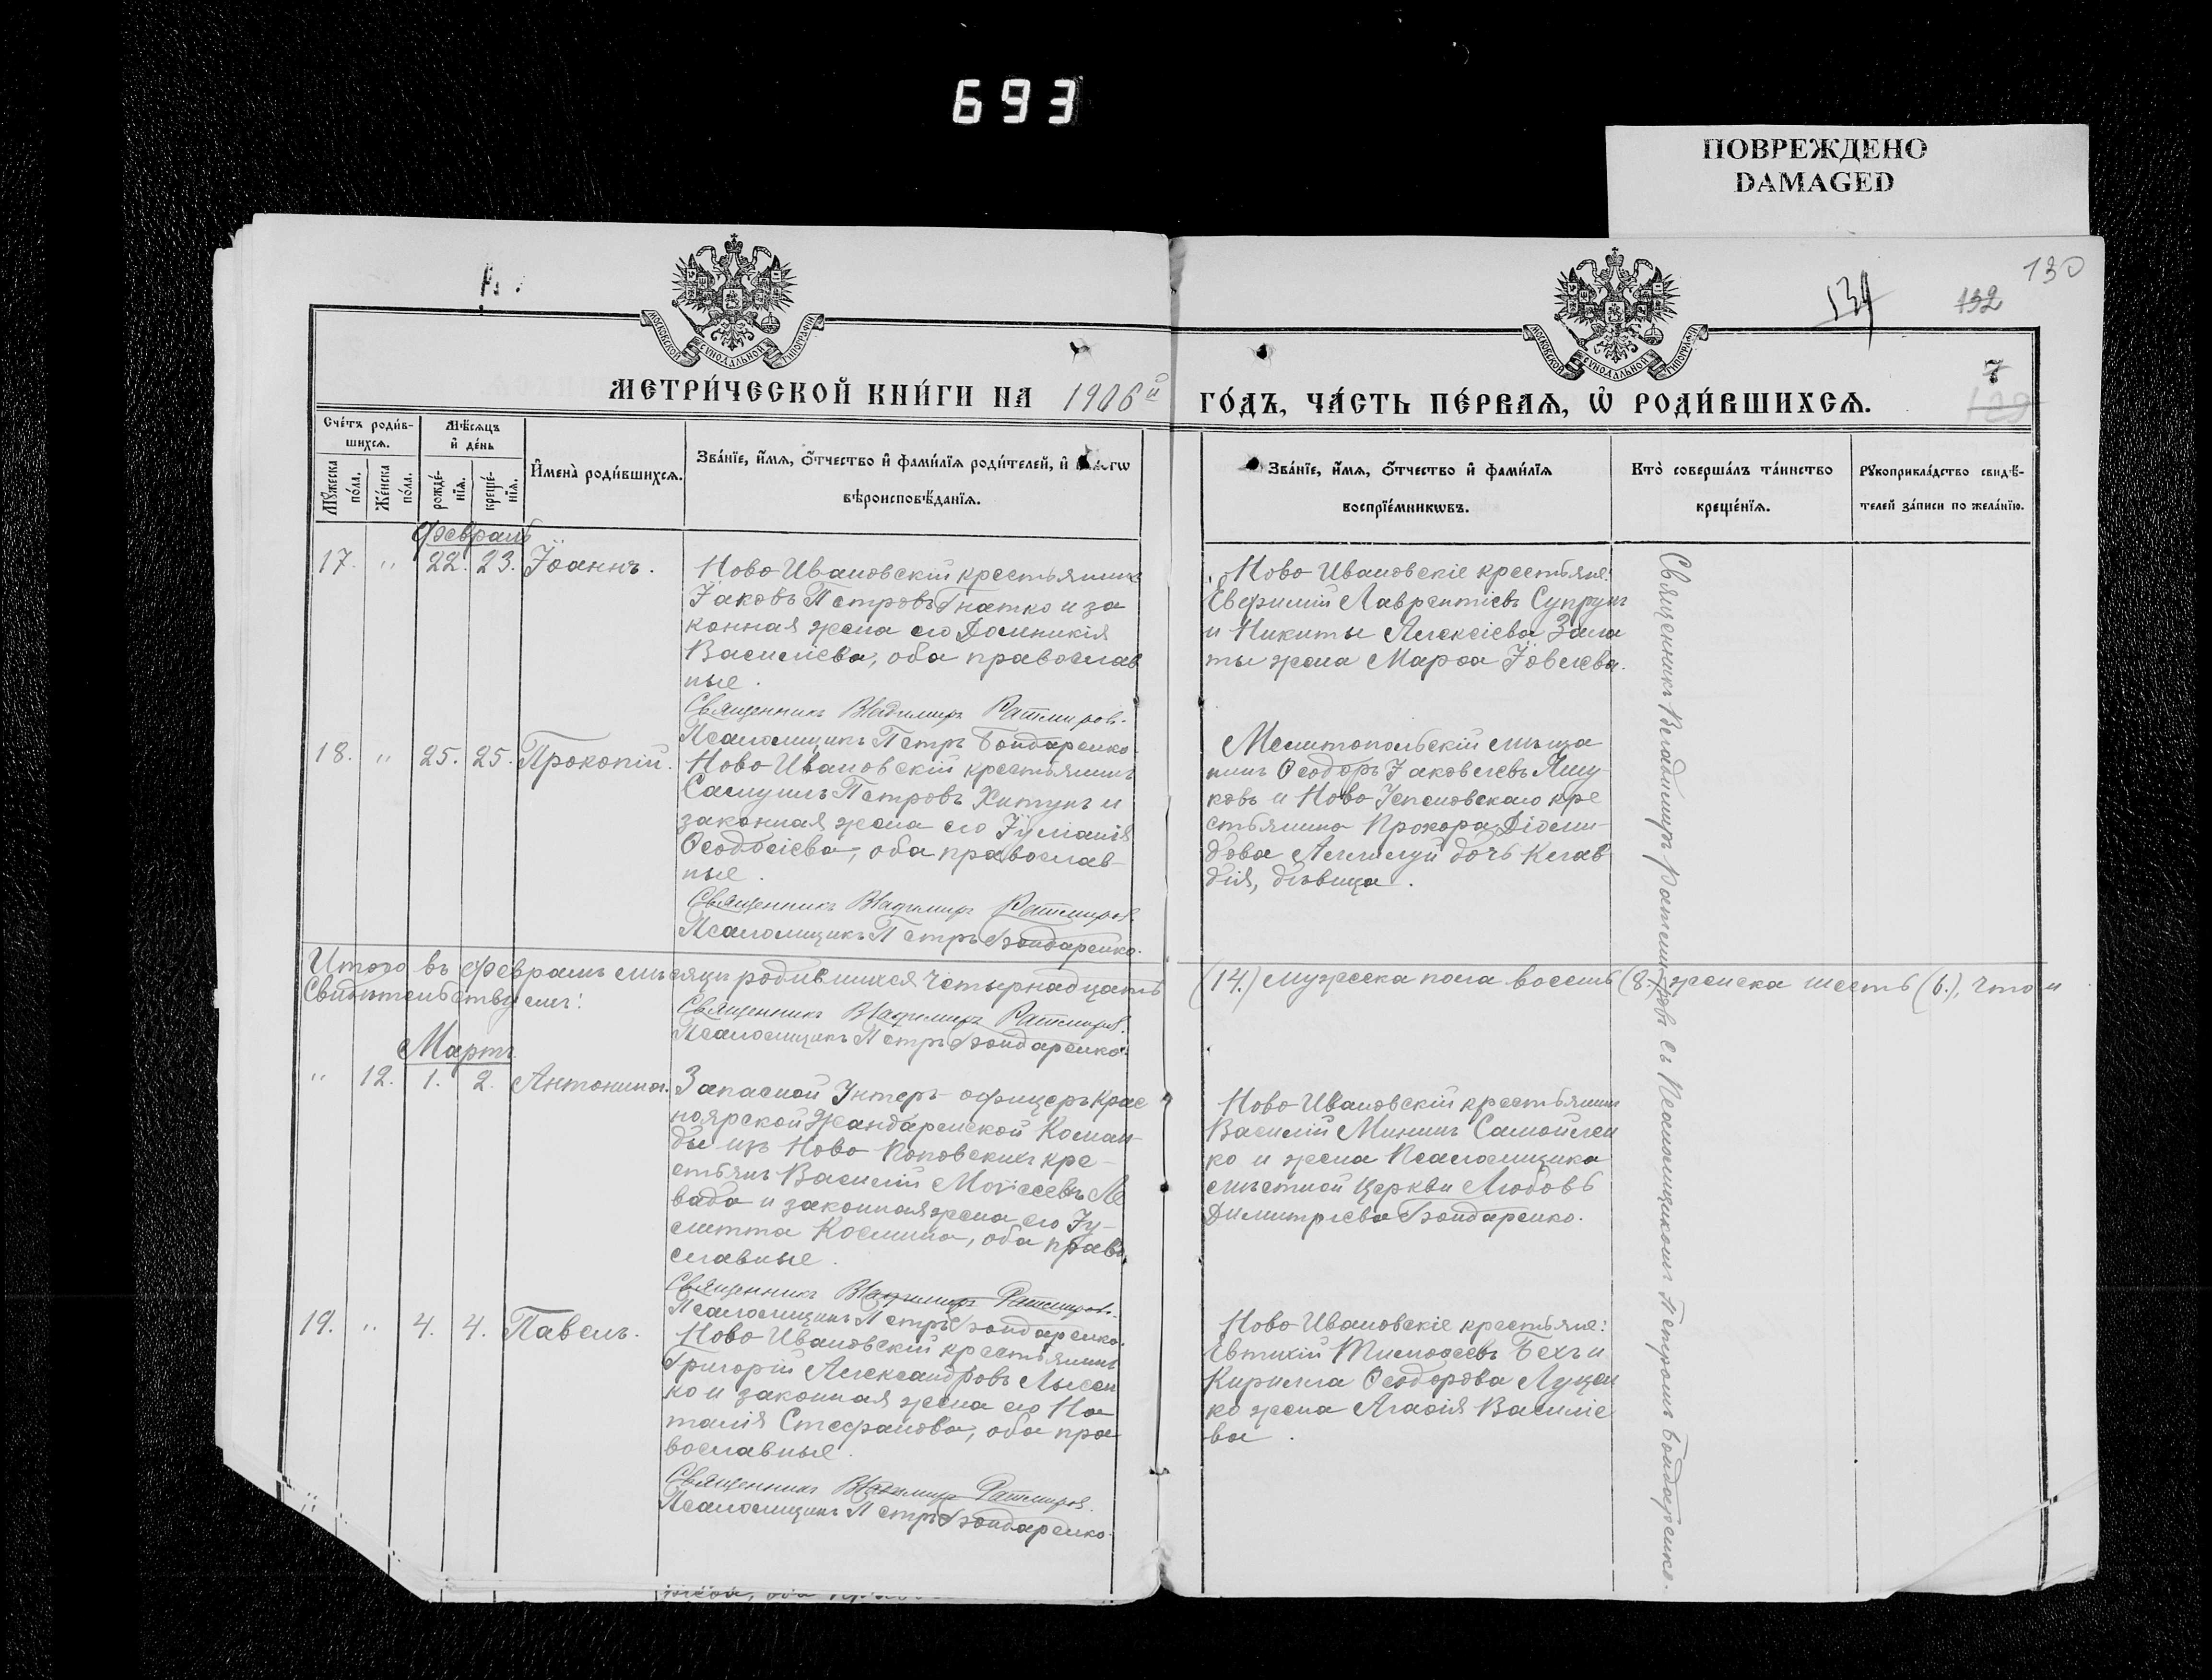 693
ПОВРЕЖДЕНО
DAMAGED
130
134
132
7
129
МОСКОВСКОЙ СУНОДАЛЬНОЙ ТИПОГРАФІИ
МОСКОВСКОЙ СУНОДАЛЬНОЙ ТИПОГРАФІИ
МЕТРИ́ЧЕСКОЙ КНИ́ГИ НА 1906й
ГО́ДЪ, ЧА́СТЬ ПЕ́РВАЯ, Ѡ РОДИ́ВШИХСЯ.
Сче́тъ роди́в-
шихся.
Мꙋ́жеска
по́ла.
Же́нска
по́ла.
Мѣ́сяцъ
и҆ де́нь
рожде́-
нїя.
креще́-
нїя.
И҆мена̀ роди́вшихся.
Зва́нїе, и҆́мя, ѻ҆́тчество и҆ фами́лїя роди́телей, и҆
вѣроисповѣ́данїя.
Зва́нїе, и҆́мя, ѻ҆́тчество и҆ фами́лїя
воспрїе́мникѡвъ.
Кто̀ соверша́лъ та́инство
креще́нїя.
Рꙋкоприкла́дство свидѣ́-
телей за́писи по жела́нїю.
Февраль
17. " 22. 23. Іоаннъ.
Ново Ивановскій крестьянинъ
Іаковъ Петровъ Гнатко и за
конная жена его Домникія
Василіева, оба православ
ные.
Священникъ Владимиръ Ратмировъ.
Псаломщикъ Петръ Бондаренко
Ново Ивановскіе крестьяне:
Евфимій Лаврентіевъ Супрунъ
и Никиты Алексіева
жена Марѳа Іовлева.
18. " 25. 25. Прокопій.
Ново Ивановскій крестьянинъ
Самуилъ Петровъ Хитунъ и
законная жена его Іуліанія
Ѳеодосіева, оба православ-
ные.
Священникъ Владимиръ Ратмировъ.
Псаломщикъ Петръ Бондаренко.
Мелитопольскій мѣща
нинъ Ѳеодоръ Іаковлевъ
и Ново Успеновскаго кре
стьянина Прохора Діоми-
дова дочь Клав
дія, дѣвица.
Итого въ Февралѣ мѣсяцѣ родившихся четырнадцать (14.) мужеска пола восемь (8.) женска шесть (6.), что и
Свидѣтельствуемъ:
Священникъ Владимиръ Ратмировъ.
Псаломщикъ Петръ Бондаренко
Мартъ
" 12. 1. 2. Антонина.
Запасной Унтеръ-офицеръ Крас
ноярской Жандармской Коман-
ды изъ Ново Поповскихъ кре-
стьянъ Василій Моисеевъ Ле
вада и законная жена его Іу-
литта Космина, оба право
славные.
Священникъ Владимиръ Ратмировъ.
Псаломщикъ Петръ Бондаренко.
Ново Ивановскій крестьянинъ
Василій Мининъ Самойлен
ко и жена Псаломщика
мѣстной Церкви Любовь
Димитріева Бондаренко.
19. " 4. 4. Павелъ.
Ново Ивановскій крестьянинъ
Григорій Александровъ Лысен
ко и законная жена его На
талія Стефанова, оба пра
вославные.
Священникъ Владимиръ Ратмировъ.
Псаломщикъ Петръ Бондаренко.
Ново Ивановскіе крестьяне:
Евтихій Тимоѳеевъ Бехъ и
Кирилла Ѳеодорова Луцен
ко жена Агаѳія Василіе
ва.
Священникъ Владимиръ Ратмировъ съ Псаломщикомъ Петромъ Бондаренко.